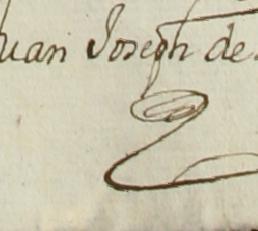 uan Joseph de